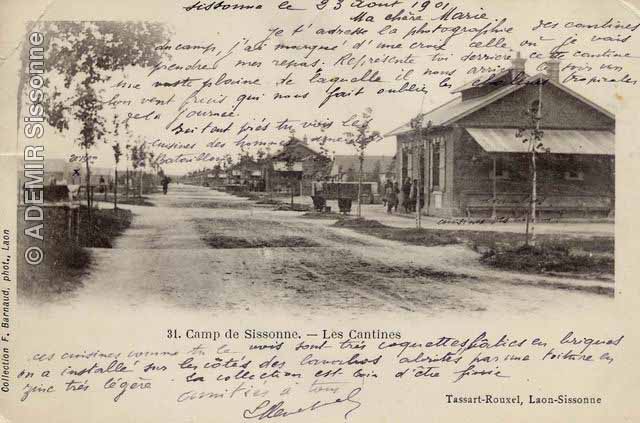 Sissonne le 23 Août 1901
Ma chère Marie
je t'adresse la photographie des cantines
du camp, j'ai marqué d'une croix celle où je vais
prendre mes repas. Représente toi derrière cette cantine
une vaste plaine de laquelle il nous arrive un
bon vent frais qui nous fait oublier les tropicales
de la journée.
très tu vois les
cuisines des hommes
bataillon
cuisines
31. Camp de Sissonne. — Les Cantines
ces cuisines comme tu le vois sont très coquettes faites en briques
on a installé sur les côtés des lavabos abrités par une toiture en
zinc très légère. La collection est loin d'être finie
amitiés à tous
Tassart-Rouxel, Laon-Sissonne
Collection F. Barnaud, phot., Laon
© ADEMIR Sissonne